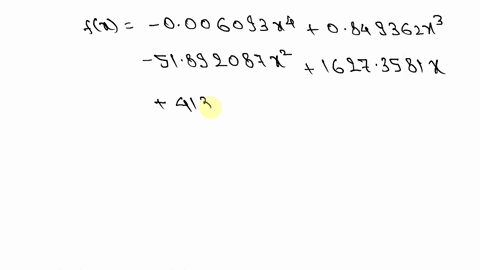 f(x) = -0.006093x⁴ + 0.849362x³
-51.892087x² + 1627.3581x
+ 413